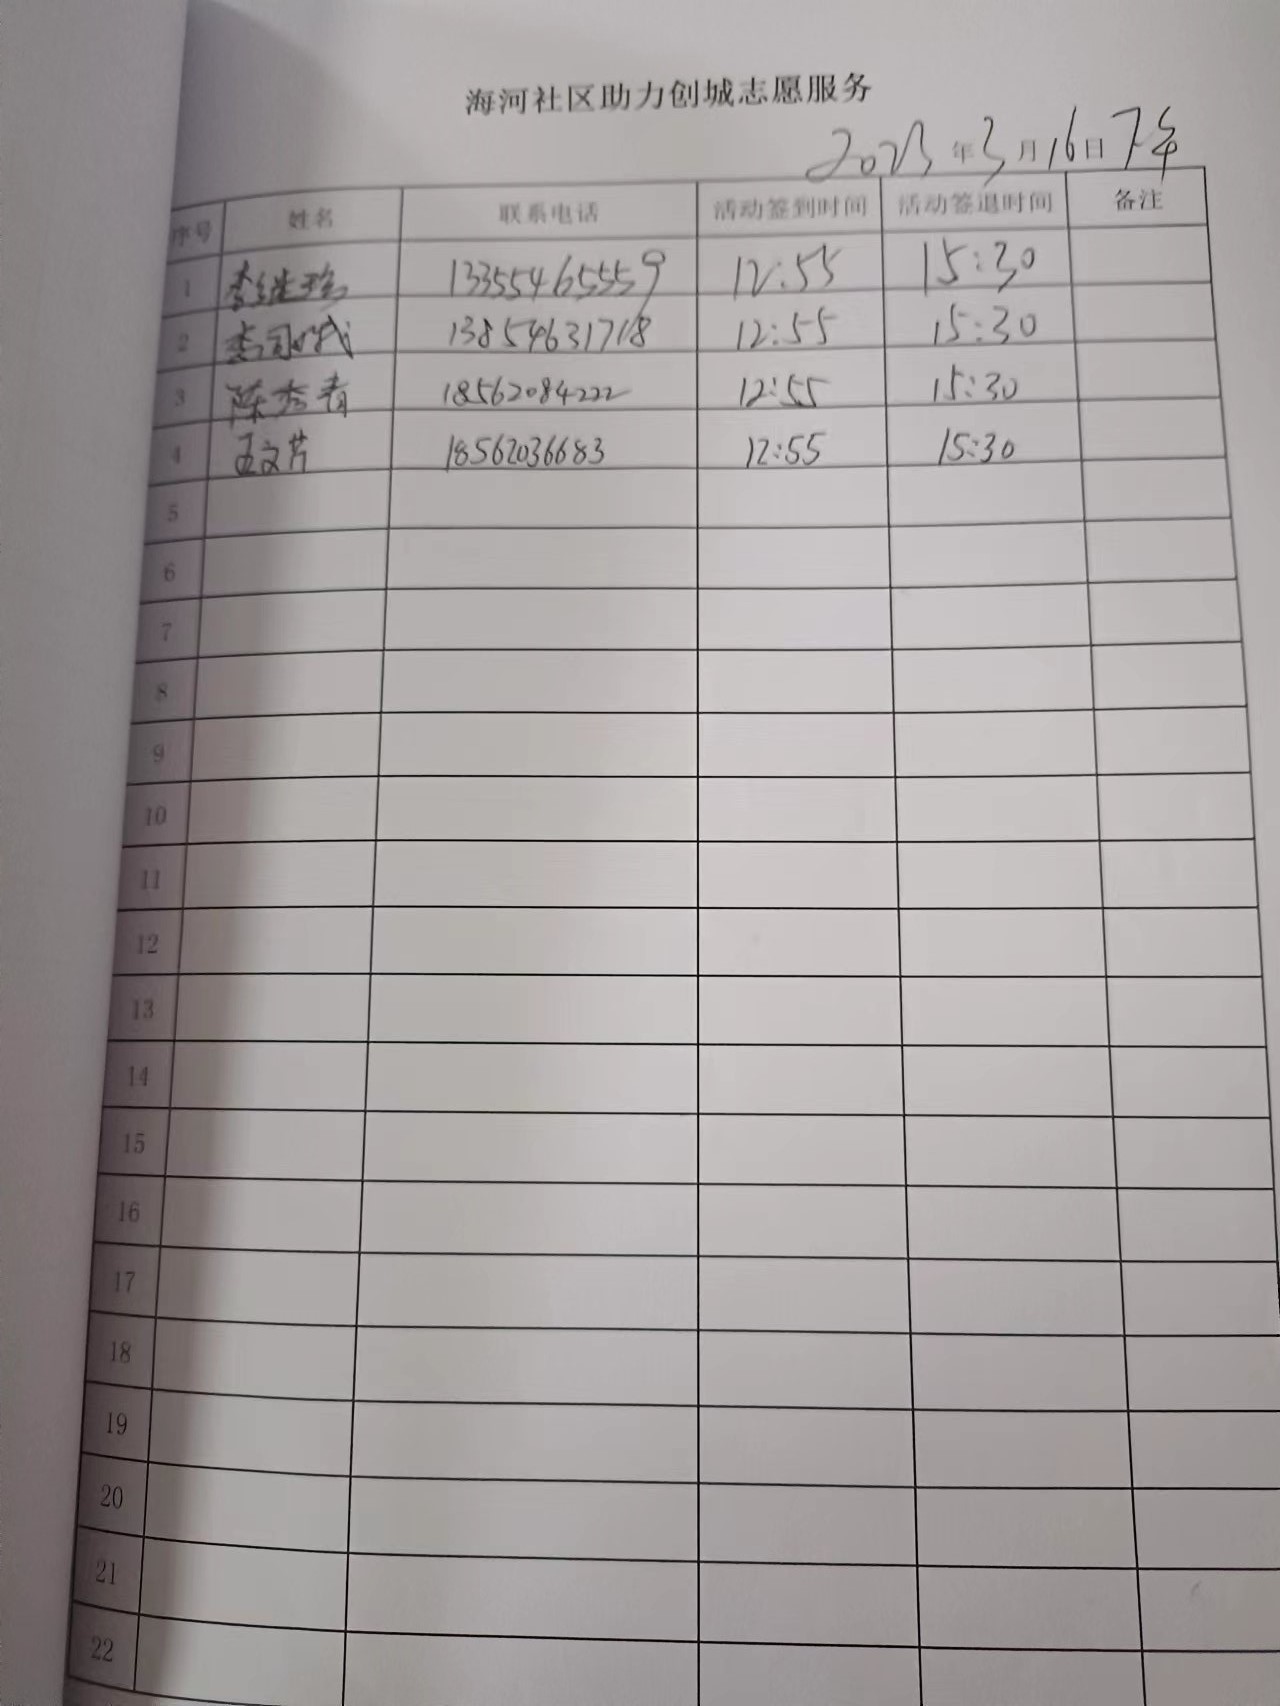 海河社区助力创城志愿服务
2023年3月16日下午
序号 姓名 联系电话 活动签到时间 活动签退时间 备注
1 李继玲 13355465559 12:55 15:30
2 13854631718 12:55 15:30
3 陈秀青 18562084222 12:55 15:30
4 孟文芹 18562036683 12:55 15:30
5
6
7
8
9
10
11
12
13
14
15
16
17
18
19
20
21
22